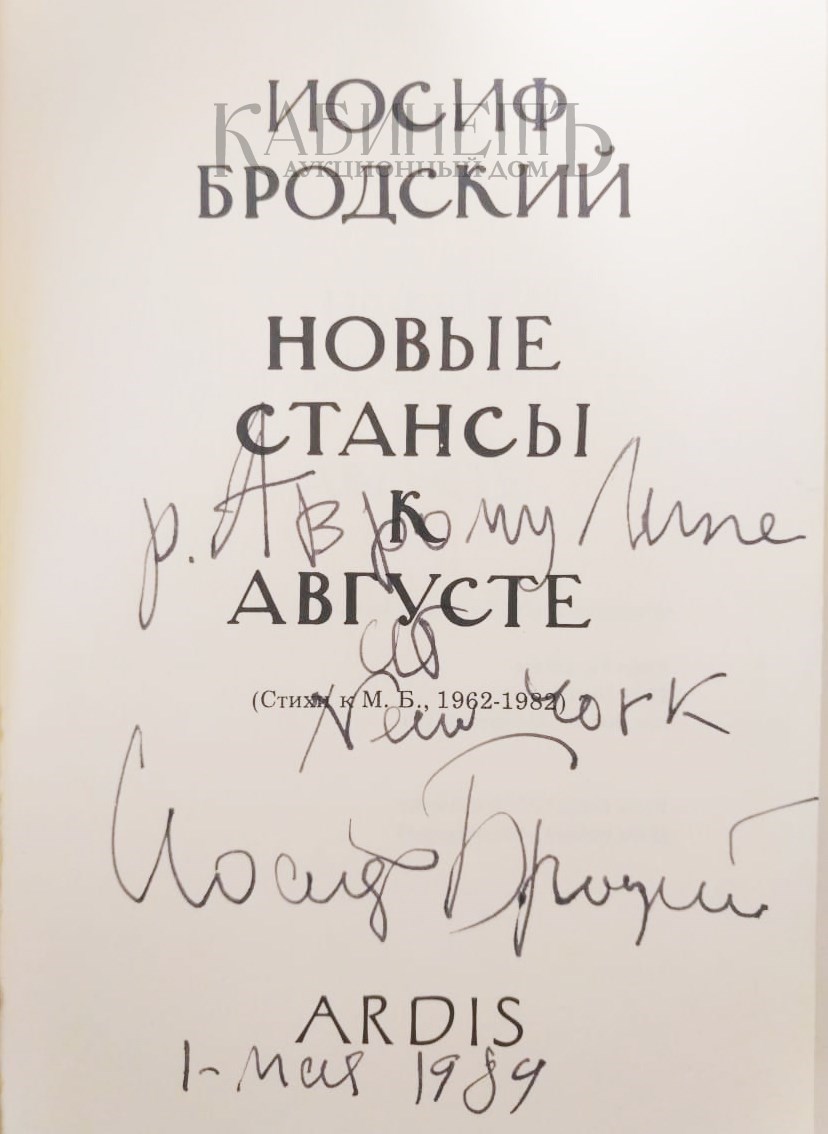 КАБИНЕТЪ
АУКЦИОННЫЙ ДОМ
ИОСИФ
БРОДСКИЙ
НОВЫЕ
СТАНСЫ
К
АВГУСТЕ
(Стихи к М. Б., 1962-1982)
р. Аврому
New York
Иосиф Бродский
ARDIS
1- мая 1989